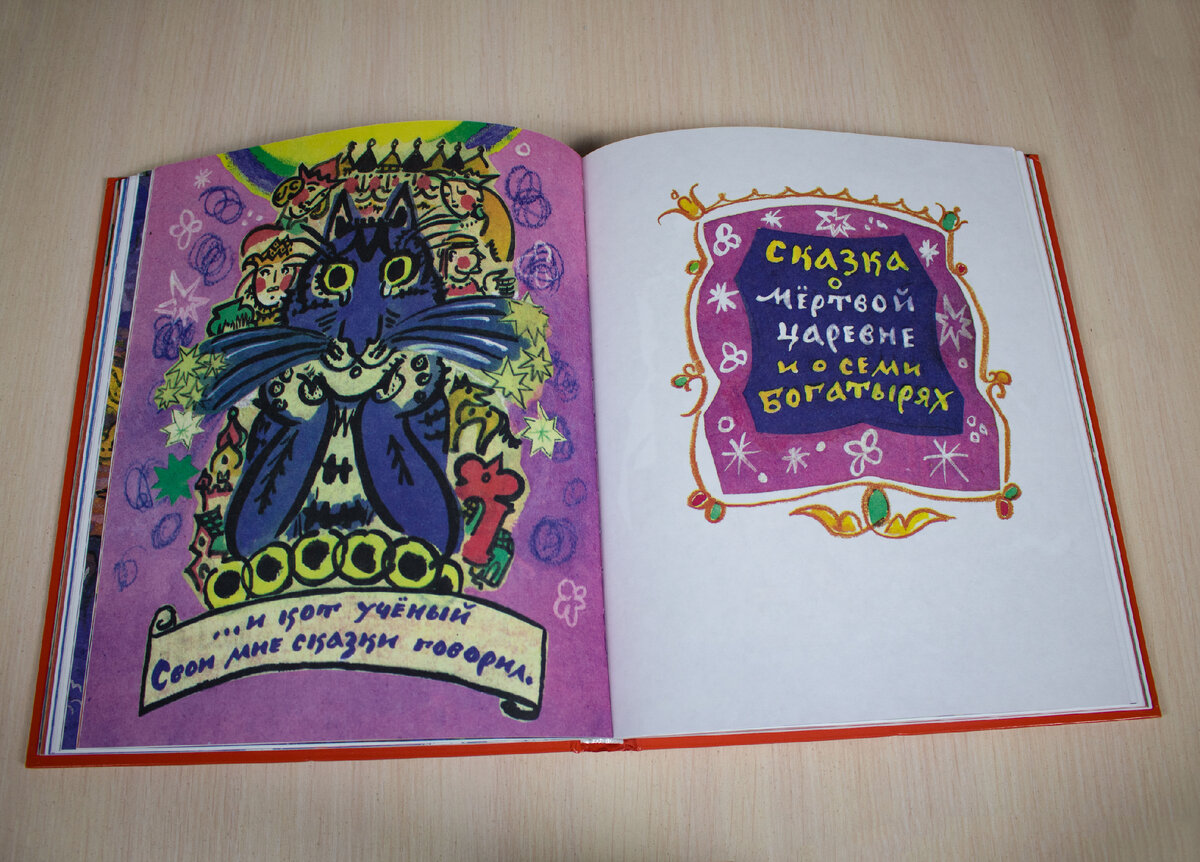 ...и кот учёный
Свои мне сказки говорил.
Сказка
о
мёртвой
царевне
и о семи
богатырях